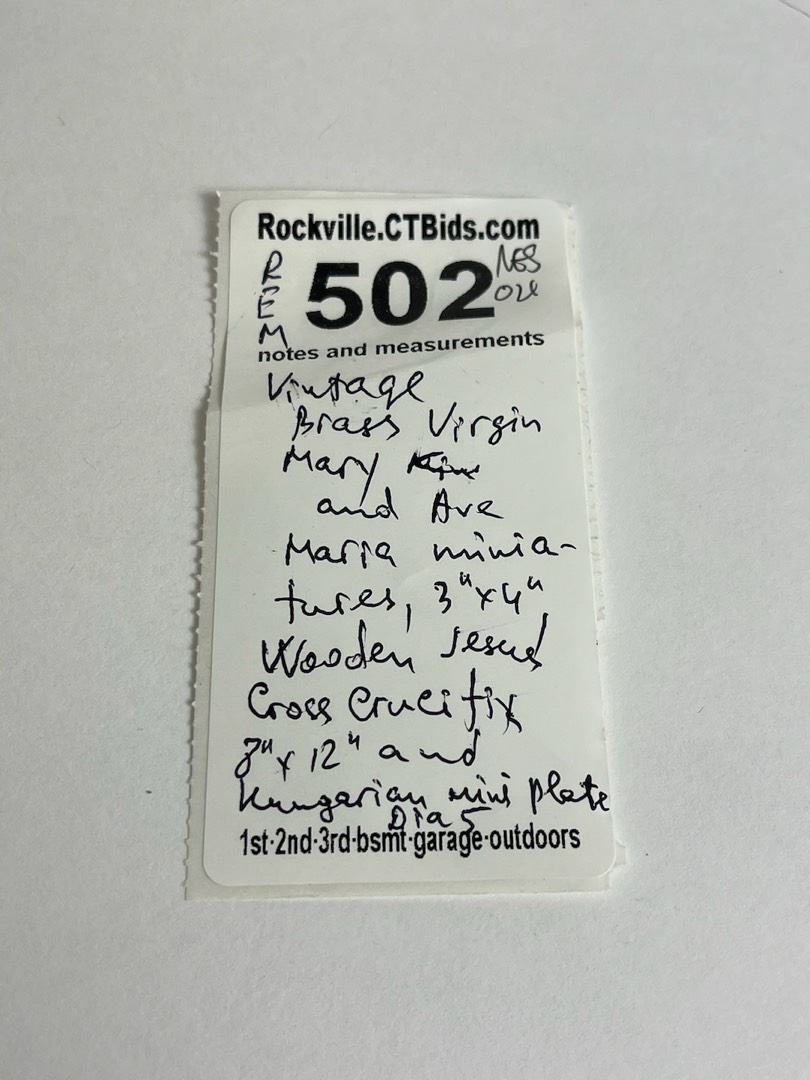 Rockville.CTBids.com
REM
502
notes and measurements
Vintage
Brass Virgin
Mary
and Ave
Maria minia-
tures, 3"x4"
Wooden Jesus
Cross Crucifix
8"x12" and
Hungarian mini plate
Dia 5
1st·2nd·3rd·bsmt·garage·outdoors